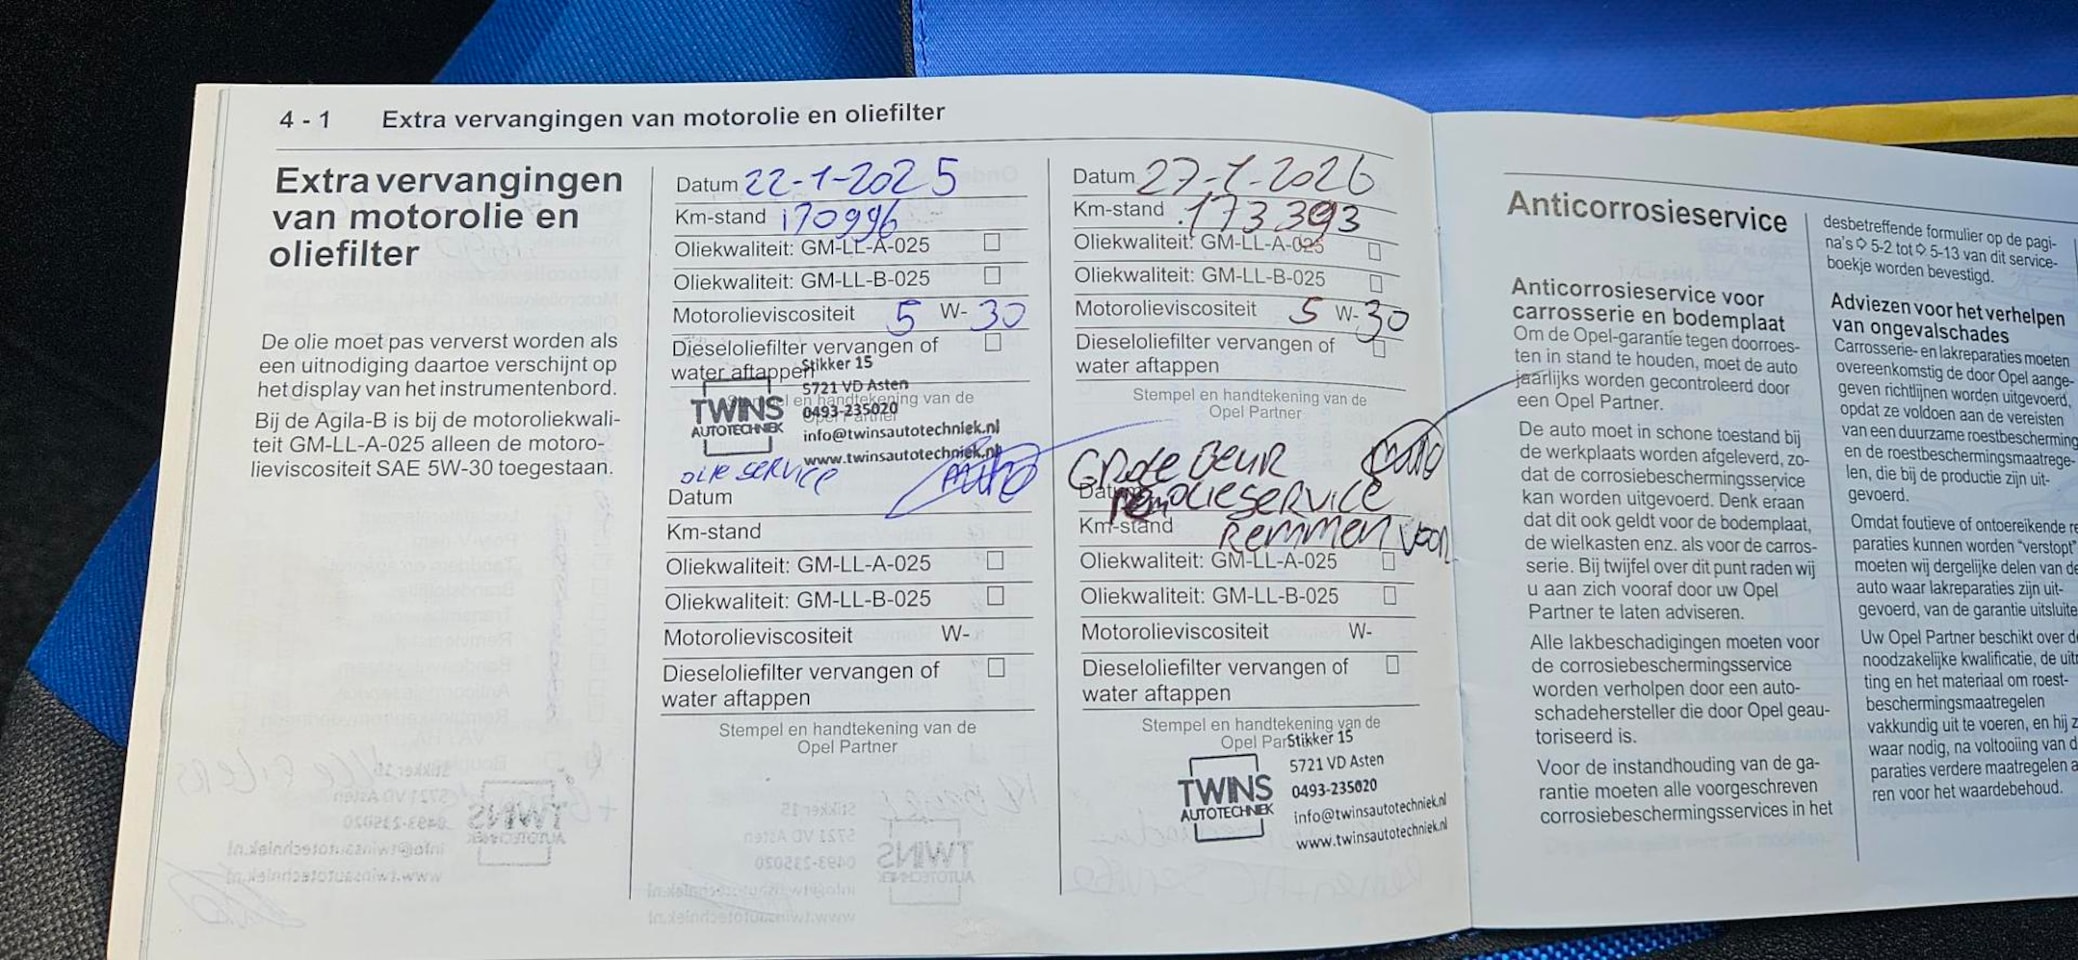 4 - 1 Extra vervangingen van motorolie en oliefilter
Extra vervangingen
van motorolie en
oliefilter
De olie moet pas ververst worden als
een uitnodiging daartoe verschijnt op
het display van het instrumentenbord.
Bij de Agila-B is bij de motoroliekwali-
teit GM-LL-A-025 alleen de motoro-
lieviscositeit SAE 5W-30 toegestaan.
Datum 22-1-2025
Km-stand 170996
Oliekwaliteit: GM-LL-A-025
Oliekwaliteit: GM-LL-B-025
Motorolieviscositeit 5 W- 30
Dieseloliefilter vervangen of
water aftappen
Stempel en handtekening van de
Opel Partner
TWINS
AUTOTECHNIEK
Stikker 15
5721 VD Asten
0493-235020
info@twinsautotechniek.nl
www.twinsautotechniek.nl
olie service
Datum
Km-stand
Oliekwaliteit: GM-LL-A-025
Oliekwaliteit: GM-LL-B-025
Motorolieviscositeit W-
Dieseloliefilter vervangen of
water aftappen
Stempel en handtekening van de
Opel Partner
Datum 27-1-2026
Km-stand 173393
Oliekwaliteit: GM-LL-A-025
Oliekwaliteit: GM-LL-B-025
Motorolieviscositeit 5 W- 30
Dieseloliefilter vervangen of
water aftappen
Stempel en handtekening van de
Opel Partner
Grote Beur
Datum olieservice
Km-stand Remmen voor
Oliekwaliteit: GM-LL-A-025
Oliekwaliteit: GM-LL-B-025
Motorolieviscositeit W-
Dieseloliefilter vervangen of
water aftappen
Stempel en handtekening van de
Opel Partner
TWINS
AUTOTECHNIEK
Stikker 15
5721 VD Asten
0493-235020
info@twinsautotechniek.nl
www.twinsautotechniek.nl
Anticorrosieservice
Anticorrosieservice voor
carrosserie en bodemplaat
Om de Opel-garantie tegen doorroes-
ten in stand te houden, moet de auto
jaarlijks worden gecontroleerd door
een Opel Partner.
De auto moet in schone toestand bij
de werkplaats worden afgeleverd, zo-
dat de corrosiebeschermingsservice
kan worden uitgevoerd. Denk eraan
dat dit ook geldt voor de bodemplaat,
de wielkasten enz. als voor de carros-
serie. Bij twijfel over dit punt raden wij
u aan zich vooraf door uw Opel
Partner te laten adviseren.
Alle lakbeschadigingen moeten voor
de corrosiebeschermingsservice
worden verholpen door een auto-
schadehersteller die door Opel geau-
toriseerd is.
Voor de instandhouding van de ga-
rantie moeten alle voorgeschreven
corrosiebeschermingsservices in het
desbetreffende formulier op de pagi-
na's 5-2 tot 5-13 van dit service-
boekje worden bevestigd.
Adviezen voor het verhelpen
van ongevalschades
Carrosserie- en lakreparaties moeten
overeenkomstig de door Opel aange-
geven richtlijnen worden uitgevoerd,
opdat ze voldoen aan de vereisten
van een duurzame roestbescherming
en de roestbeschermingsmaatrege-
len, die bij de productie zijn uit-
gevoerd.
Omdat foutieve of ontoereikende re
paraties kunnen worden "verstopt"
moeten wij dergelijke delen van de
auto waar lakreparaties zijn uit-
gevoerd, van de garantie uitsluite
Uw Opel Partner beschikt over de
noodzakelijke kwalificatie, de uit
ting en het materiaal om roest-
beschermingsmaatregelen
vakkundig uit te voeren, en hij z
waar nodig, na voltooiing van d
paraties verdere maatregelen a
ren voor het waardebehoud.